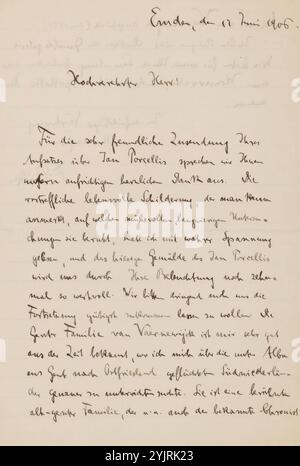 Emden, den 17 Juni 1906.
Hochverehrter Herr!
Für die sehr freundliche Zusendung Ihres
Aufsatzes über Jan Porcellis sprechen wir Ihnen
unsern aufrichtigen herzlichen Dank aus. Die
vortreffliche lebensvolle Schilderung, der man kaum
anmerkt, auf welchen mühevollen langwierigen Untersu-
chungen sie beruht, habe ich mit wahrer Spannung
gelesen, und das hiesige Gemälde des Jan Porcellis
wird uns durch Ihre Beleuchtung noch zehn-
mal so wertvoll. Wir bitten dringend auch uns die
Fortsetzung gütigst zukommen lassen zu wollen. Die
Genter Familie van Vaernewijck ist mir sehr gut
aus der Zeit bekannt, wo ich mich über die unter Alba
aus Gent nach Ostfriesland geflüchteten Südniederlän-
der genauer zu unterrichten suchte. Sie ist eine berühmte
alt-genter Familie, der u. a. auch der bekannte Chronist
a
alamy
Image ID: 2YJRK23
www.alamy.com